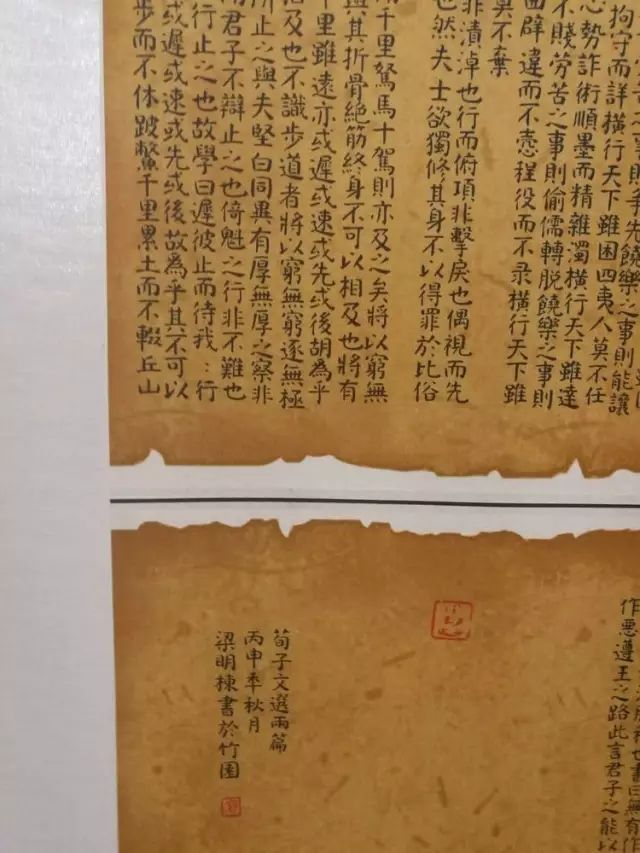 之事則爭先饒樂之事則能讓
拘守而詳橫行天下雖困四夷人莫不任
心勢詐術順墨而精雜濁橫行天下雖達
不賤勞苦之事則偷儒轉脫饒樂之事則
辟違而不愨程役而不录橫行天下雖
莫不棄
非漬淖也行而俯項非擊戾也偶視而先
也然夫士欲獨修其身不以得罪於比俗
千里駑馬十駕則亦及之矣將以窮無
與其折骨絕筋終身不可以相及也將有
千里雖遠亦或遲或速或先或後胡為乎
及也不識步道者將以窮無窮逐無極
所止之與夫堅白同異有厚無厚之察非
君子不辯止之也倚魁之行非不難也
行止之也故學曰遲彼止而待我：行
或遲或速或先或後故為乎其不可以
步而不休跛鱉千里累土而不輟丘山
也書曰無有作
作惡遵王之路此言君子之能以
荀子文選兩篇
丙申年秋月
梁明棟書於竹園